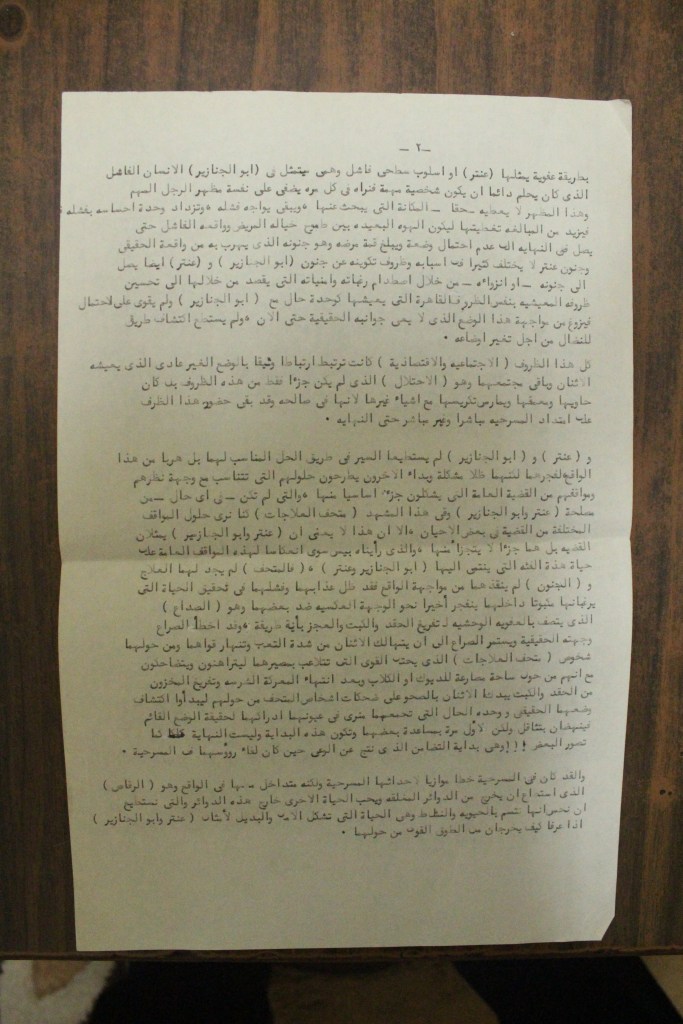 -٢-
بطريقة عفوية يمثلها (عنتر) او اسلوب سطحي فاشل وهمي متمثل في (ابو الجنازير) الانسان الفاشل
الذي كان يحلم دائما ان يكون شخصية مهمة فنراه في كل مره يضفي على نفسة مظهر الرجل المهم
وهذا المظهر لا يعطيه حقا - المكانة التي يبحث عنها ، ويبقى يواجه فشله ، وتزداد وحدة احساسه بفشله
فيزيد من المبالغه لتغطيتها ليكون الهوه البعيده بين طموح خياله المريض وواقعه الفاشل حتى
يصل في النهايه الى عدم احتمال وضعة ويبلغ قمة مرضه وهو جنونه الذي يهرب به من واقعة الحقيقي
وجنون عنتر لا يختلف كثيرا في اسبابه وظروف تكوينه عن جنون (ابو الجنازير ) و (عنتر) ايضا يصل
الى جنونه - او انزواءه - من خلال اصطدام رغباته وامنياته التي يقصد من خلالها الى تحسين
ظروفه المعيشيه بنفس الظروف القاهرة التي يعيشها كوحدة حال مع ( ابو الجنازير ) ولم يقوى على لاحتمال
فيزوغ من مواجهة هذا الوضع الذي لا يعي جوانبه الحقيقية حتى الان ، ولم يستطع اكتشاف طريق
للنضال من اجل تغير اوضاعه .
كل هذا الظروف ( الاجتماعيه والاقتصادية ) كانت ترتبط ارتباطا وثيقا بالوضع الغير عادى الذى يعيشه
الاثنان وباقي مجتمعهما وهو ( الاحتلال ) الذى لم يكن جزءا فقط من هذه الظروف بل كان
حاويها ومعمقها ويمارس تكريسها مع اشياء غيرها لانها في صالحه وقد بقى حضور هذا الظرف
على امتداد المسرحيه مباشرا وغير مباشر حتى النهايه .
و ( عنتر ) و ( ابو الجنازير ) لم يستطيعا السير في طريق الحل المناسب لهما بل هربا من هذا
الواقع لفجرهما لكنهما ظلا مشكلة وبداء الاخرون يطرحون حلولهم التي تتناسب مع وجهة نظرهم
ومواقفهم من القضية العامة التي يشكلون جزءا اساسيا منها ، والتي لم تكن - في اي حال - من
مصلحة ( عنتر وابو الجنازير ) وفي هذا المشهد ( متحف العلاجات ) لنا نرى حلول المواقف
المختلفة من القضية في بعض الاحيان ، الا ان هذا لا يعنى ان ( عنتر وابو الجنازير ) يمثلان
القضيه بل هما جزءا لا يتجزأ منها ، والذى رأيناه ليس سوى انعكاسا لهذه المواقف العامة على
حياة هذة الفئه التي ينتمى اليها ( ابو الجنازير وعنتر ) ، ( فالمتحف ) لم يجد لهما العلاج
و ( الجنون ) لم ينقذهما من مواجهة الواقع فقد ظل عذابهما وفشلهما في تحقيق الحياة التي
يرغبانها مكبوتا داخلهما ينفجر أخيرا نحو الوجهة العكسيه ضد بعضهما وهو ( الصراع )
الذى يتصف بالعفويه الوحشيه لتفريغ الحقد والكبت والعجز بأية طريقة ، وقد اخطأ الصراع
وجهته الحقيقية ويستمر الصراع الى ان يتهالك الاثنان من شدة التعب وتنهار قواهما ومن حولهما
شخوص ( متحف العلاجات ) الذى يحتل القوى التي تتلاعب بمصيرهما ليتراهنون ويتضاحكون
مع انهم من حول ساحة مصارعة للديوك او الكلاب وبعد انتهاء المعركة الشرسه وتفريغ المخزون
من الحقد والكبت يبدءا الاثنان بالصحو على ضحكات اشخاص المتحف من حولهم ليبدأوا اكتشاف
وضعهما الحقيقى ، وحده الحال التي تجمعهما فنرى في عيونهما ادراكهما لحقيقة الوضع القائم
فينهضان بتثاقل ولكن لاول مرة بمساعدة بعضهما وتكون هذه البداية وليست النهاية كما
تصور البعض !!! وهي بداية التضامن الذى نتج عن الوعي حين كان لقاء رؤوسهما في المسرحية .
والقد كان في المسرحية خطا موازيا لاحداثها المسرحية ولكنه متداخل معها في الواقع وهو ( الرقاص )
الذى استطاع ان يخرج من الدوائر المغلقه ويحب الحياة الاخرى خارج هذه الدوائر والتي نستطيع
ان نحس انها تتسم بالحيويه والنشاط وهي الحياة التي تشكل الامل والبديل لأمثال ( عنتر وابو الجنازير )
اذا عرفا كيف يخرجان من الطوق القوى من حولهما .